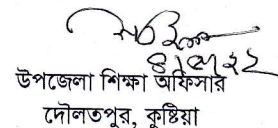 উপজেলা শিক্ষা অফিসার
দৌলতপুর, কুষ্টিয়া